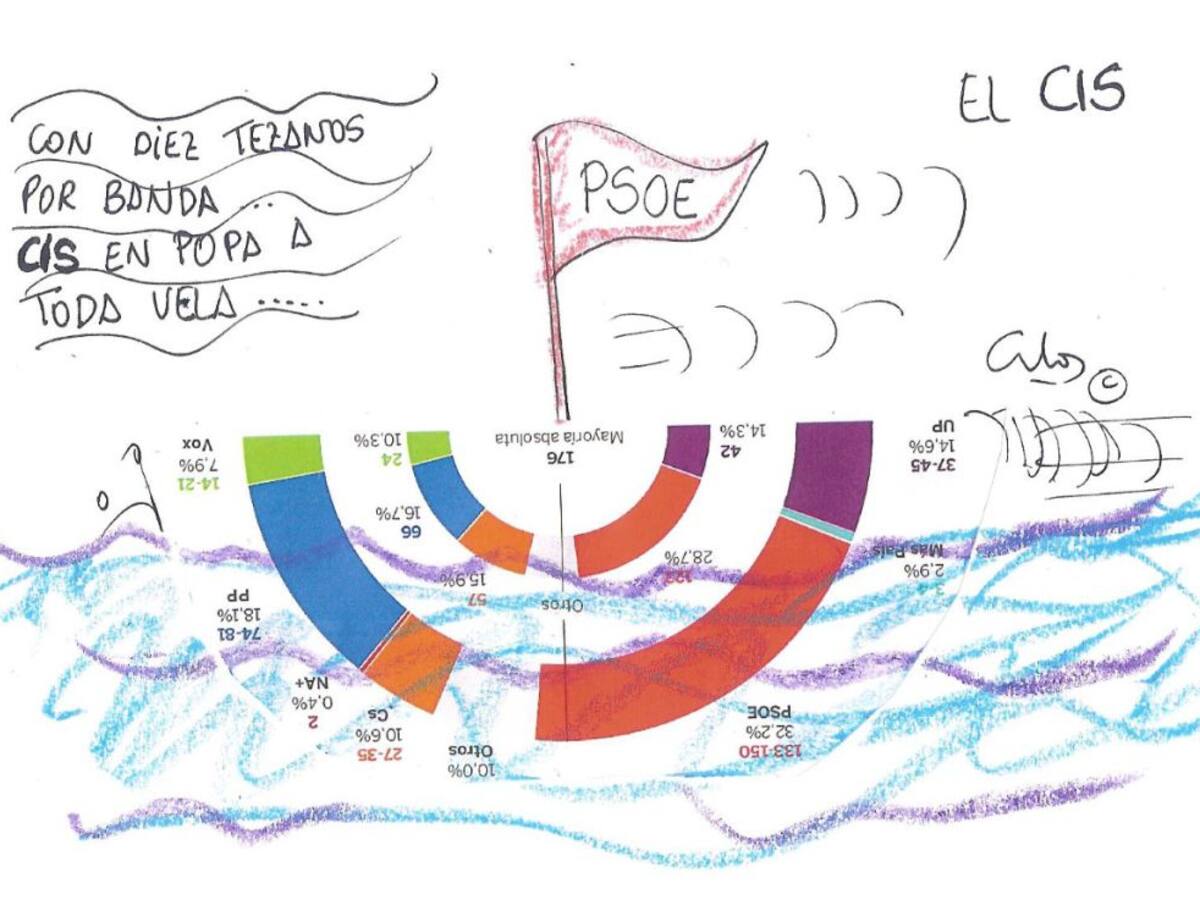 EL CIS
CON DIEZ TEZANOS
POR BANDA ...
CIS EN POPA A
TODA VELA .....
PSOE
©
14-21
7,9%
Vox
24
10,3%
176
Mayoría absoluta
42
14,3%
37-45
14,6%
UP
66
16,7%
57
15,9%
28,7%
Otros
2,9%
Más País
74-81
18,1%
PP
2
0,4%
NA+
27-35
10,6%
Cs
10,0%
Otros
133-150
32,2%
PSOE